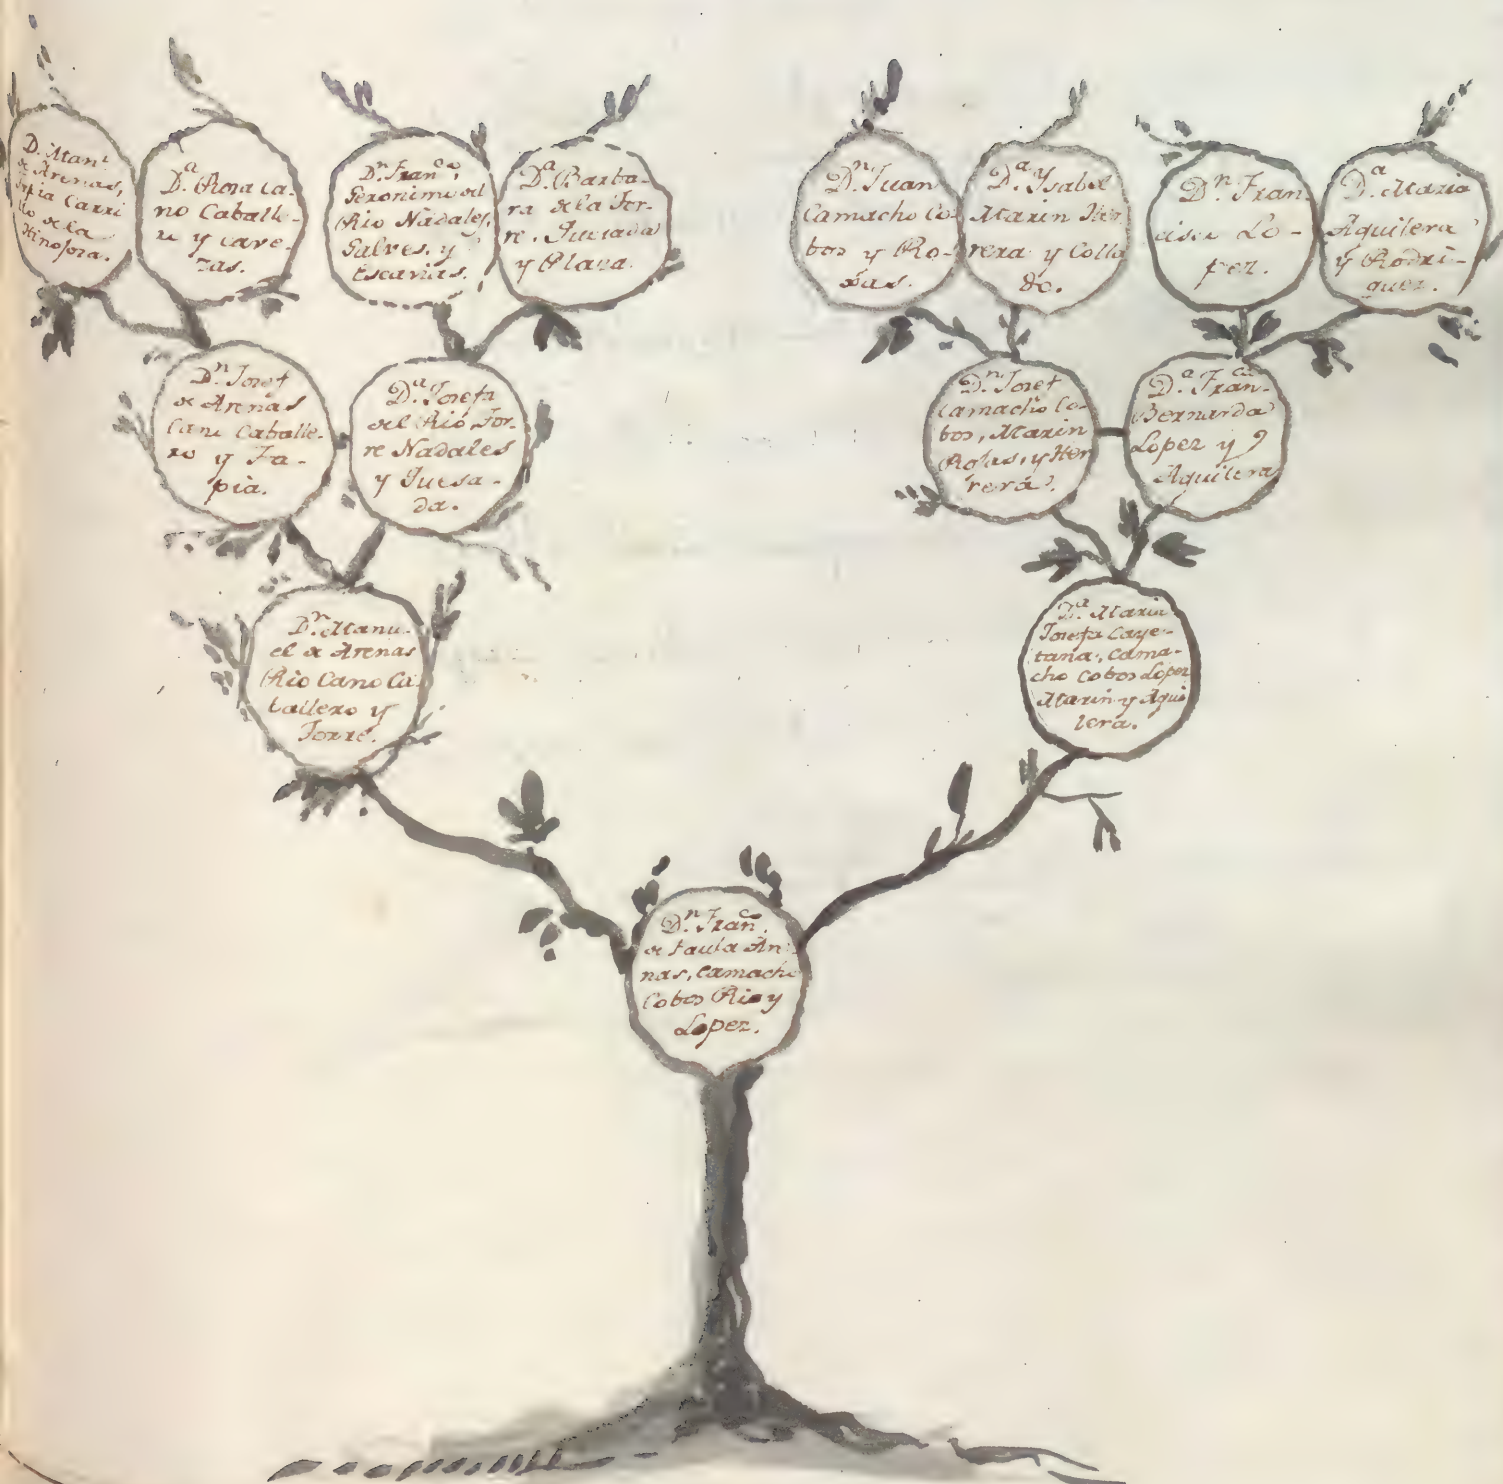 D. Man.l
de Arenas,
Tapia Carri
llo de la
Hinojosa.
D.a Rosa Ca-
no Caballe-
ro y Cave-
zas.
D.n Fran.co
Geronimo del
Rio Nadales,
Galves, y
Escañas.
D.a Barba-
ra de la Tor-
re, Quesada
y Plaza.
D.n Juan
Camacho Co-
bos y Ro-
xas.
D.a Ysabel
Marin Her
rera y Colla
do.
D.n Fran-
cisco Lo-
pez.
D.a Maria
Aguilera
y Rodri-
guez.
D.n Josef
de Arenas
Cano Caballe-
ro y Ta-
pia.
D.a Josefa
del Rio Tor-
re Nadales
y Quesa-
da.
D.n Josef
Camacho Co-
bos, Marin
Rojas, y Her
rera.
D.a Fran.ca
Bernarda
Lopez y
Aguilera
D.n Manu-
el de Arenas
Rio Cano Ca-
ballero y
Torre.
D.a Maria
Josefa Caye-
tana, Cama-
cho Cobos Lopez
Marin y Agui
lera.
D.n Fran.co
de Paula Are
nas, Camacho
Cobos Rio y
Lopez.